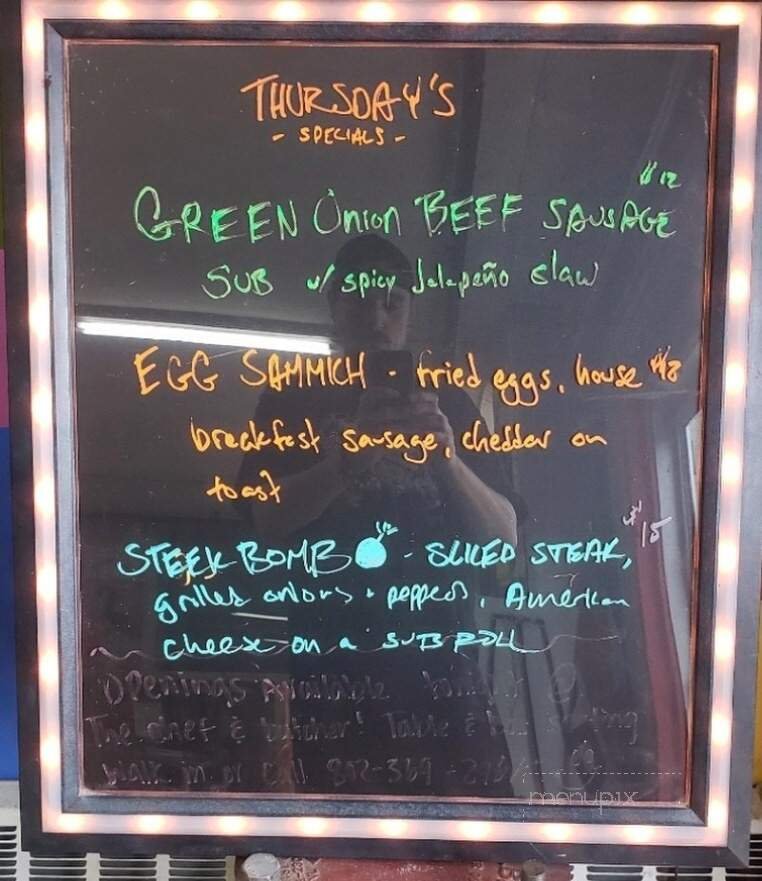 THURSDAY'S
- SPECIALS -
$12
GREEN Onion BEEF SAUSAGE
SUB w/ spicy Jalapeño slaw
EGG SAMMICH - fried eggs, house $8
breakfast sausage, cheddar on
toast
$15
STEEK BOMB - SLICED STEAK,
grilled onions + peppers, American
cheese on a SUB ROLL
Openings Available
The chef & butcher! Table & bar seating
Walk in or call 802-369
menupix